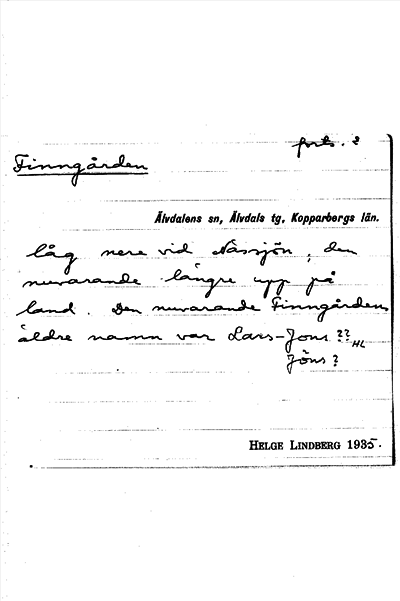 forts. 2
Finngården
Älvdalens sn, Älvdals tg, Kopparbergs län.
låg nere vid Nässjön, den
nuvarande längre upp på
land. Den nuvarande Finngårdens
äldre namn var Lars-Jons ??
HL
Jöns?
HELGE LINDBERG 1935.